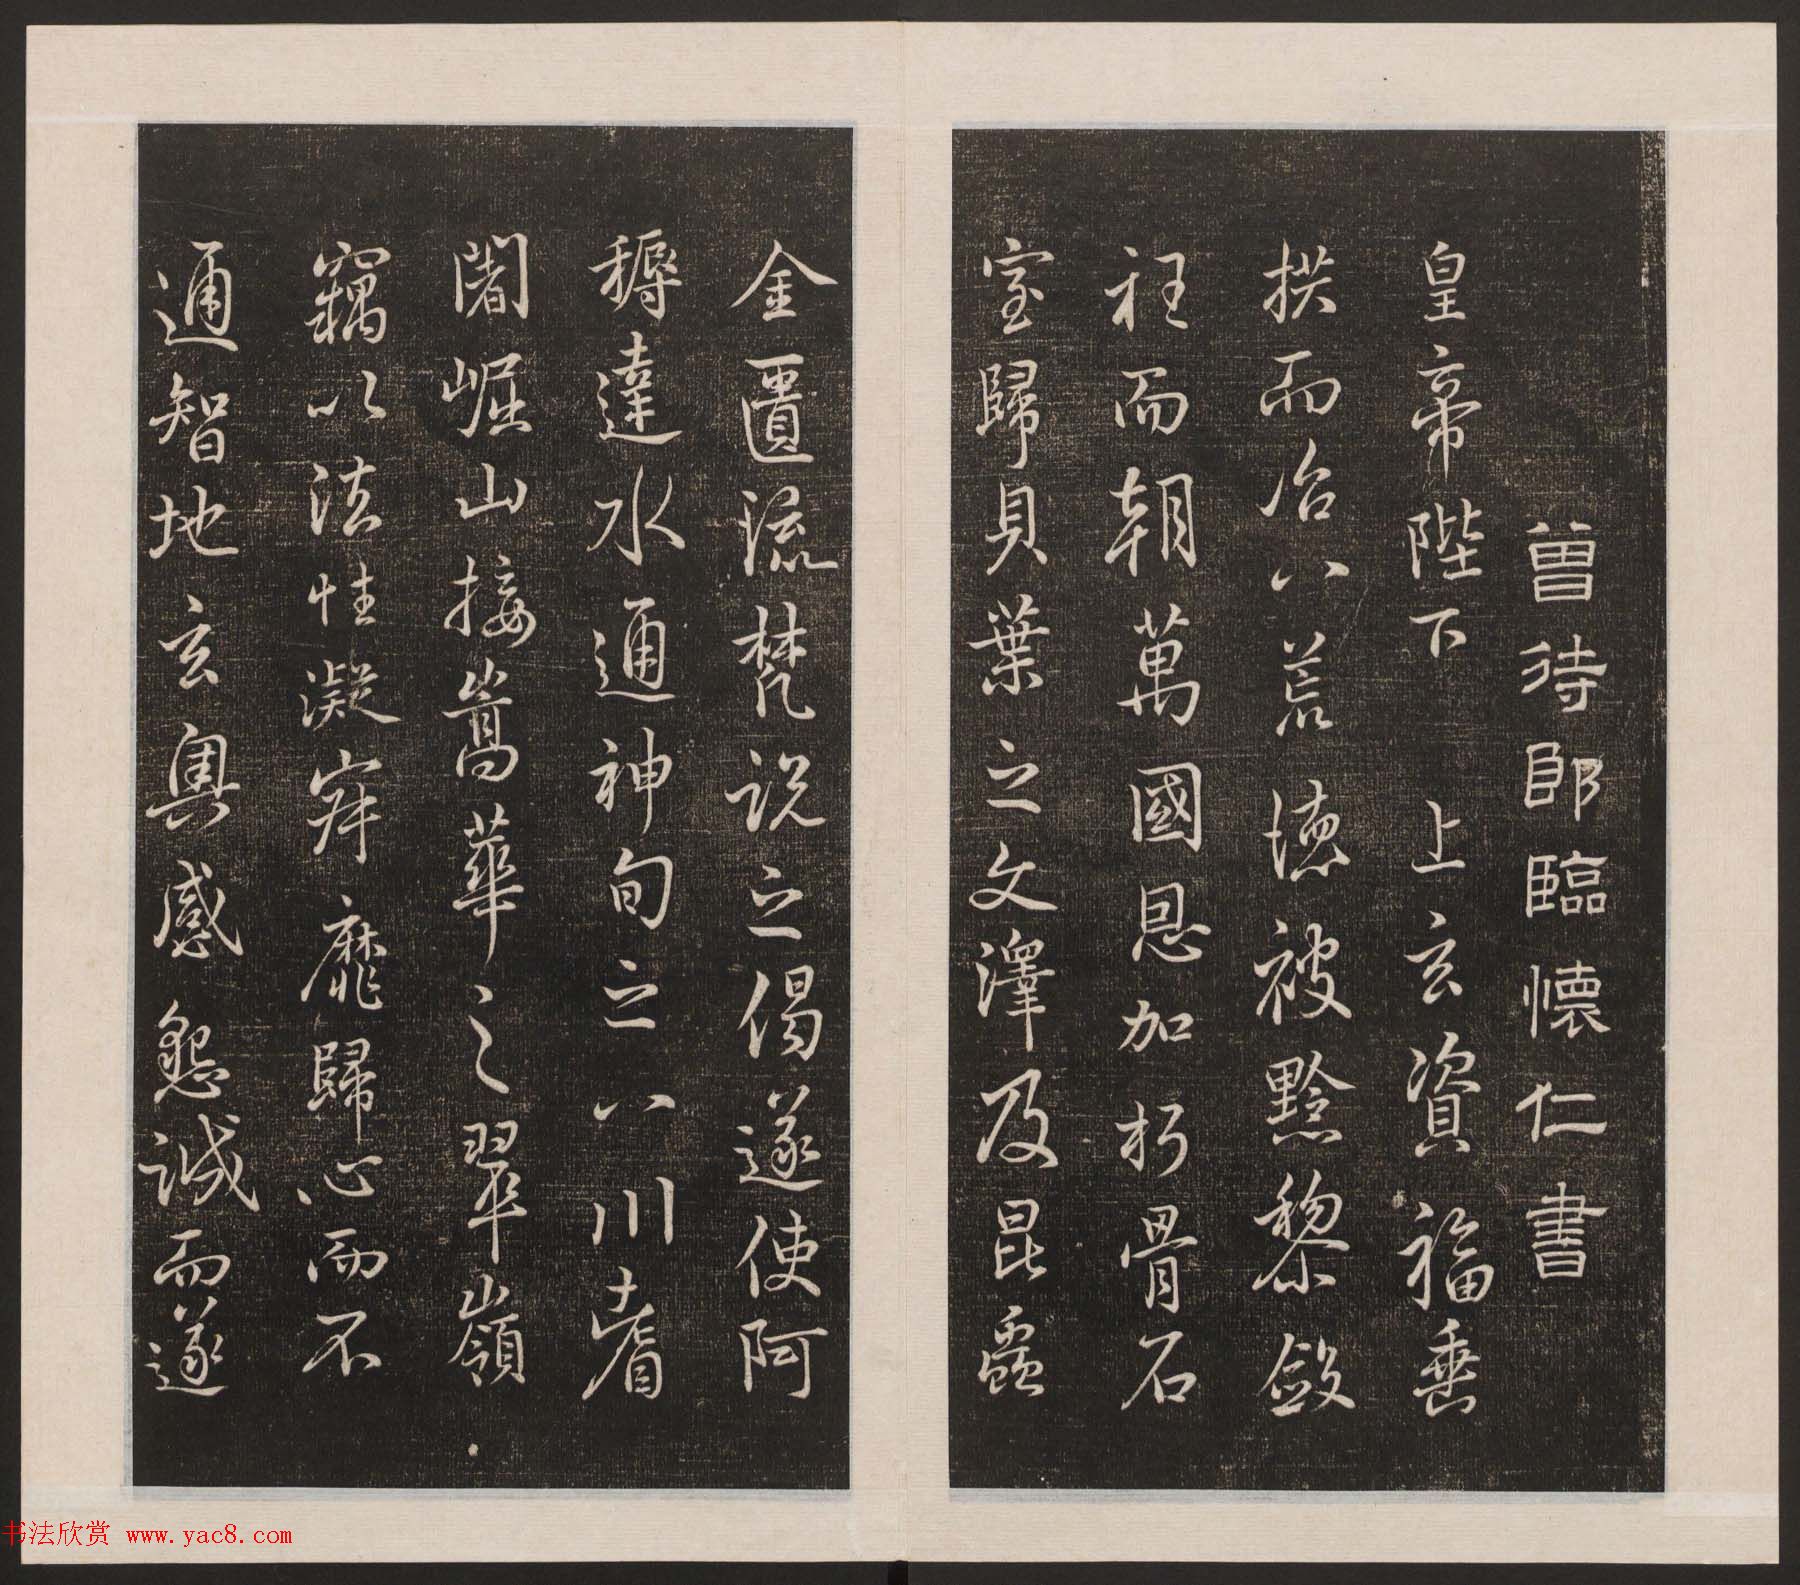 曾侍郎臨懷仁書
皇帝陛下 上玄資福垂
拱而治八荒德被黔黎斂
衽而朝萬國恩加朽骨石
室歸貝葉之文澤及昆蟲
金匱流梵說之偈遂使阿
耨達水通神甸之八川耆
闍崛山接嵩華之翠嶺
竊以法性凝寂靡歸心而不
通智地玄奧感懇誠而遂
书法欣赏 www.yac8.com